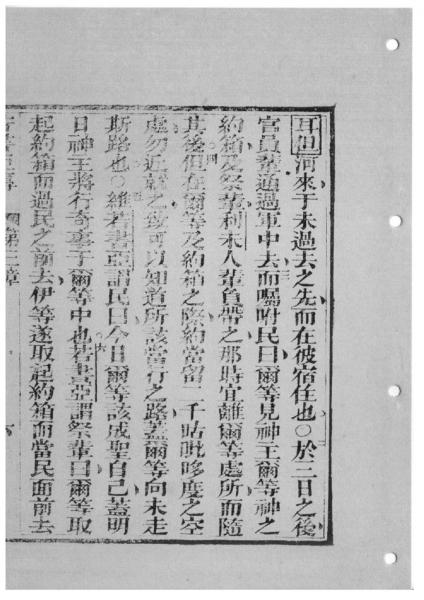 耳但河來于未過去之先而在彼宿住也○於三日之後
官員輩通過軍中去而囑咐民曰爾等見神王爾等神之
約箱及祭輩利未人輩負帶之那時宜離爾等處所而隨
其後但在爾等及約箱之際約當留二千咕吡哆度之空
處勿近就之致可以知道所該當行之路蓋爾等向未走
斯路也○維若書亞謂民曰今日爾等該成聖自己蓋明
日神王將行奇事于爾等中也若書亞謂祭輩曰爾等取
起約箱而過民之前去伊等遂取起約箱而當民面前去